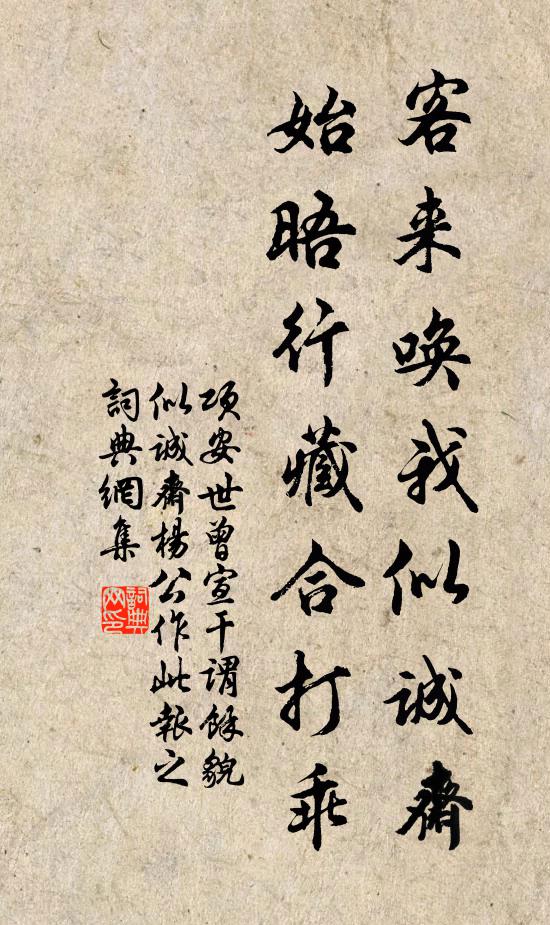 客来唤我似诚齋
始晤行藏合打乖
项安世曾宣干谓馀貌
似诚齋楊公作此報之
詞典網集
詞典
网印